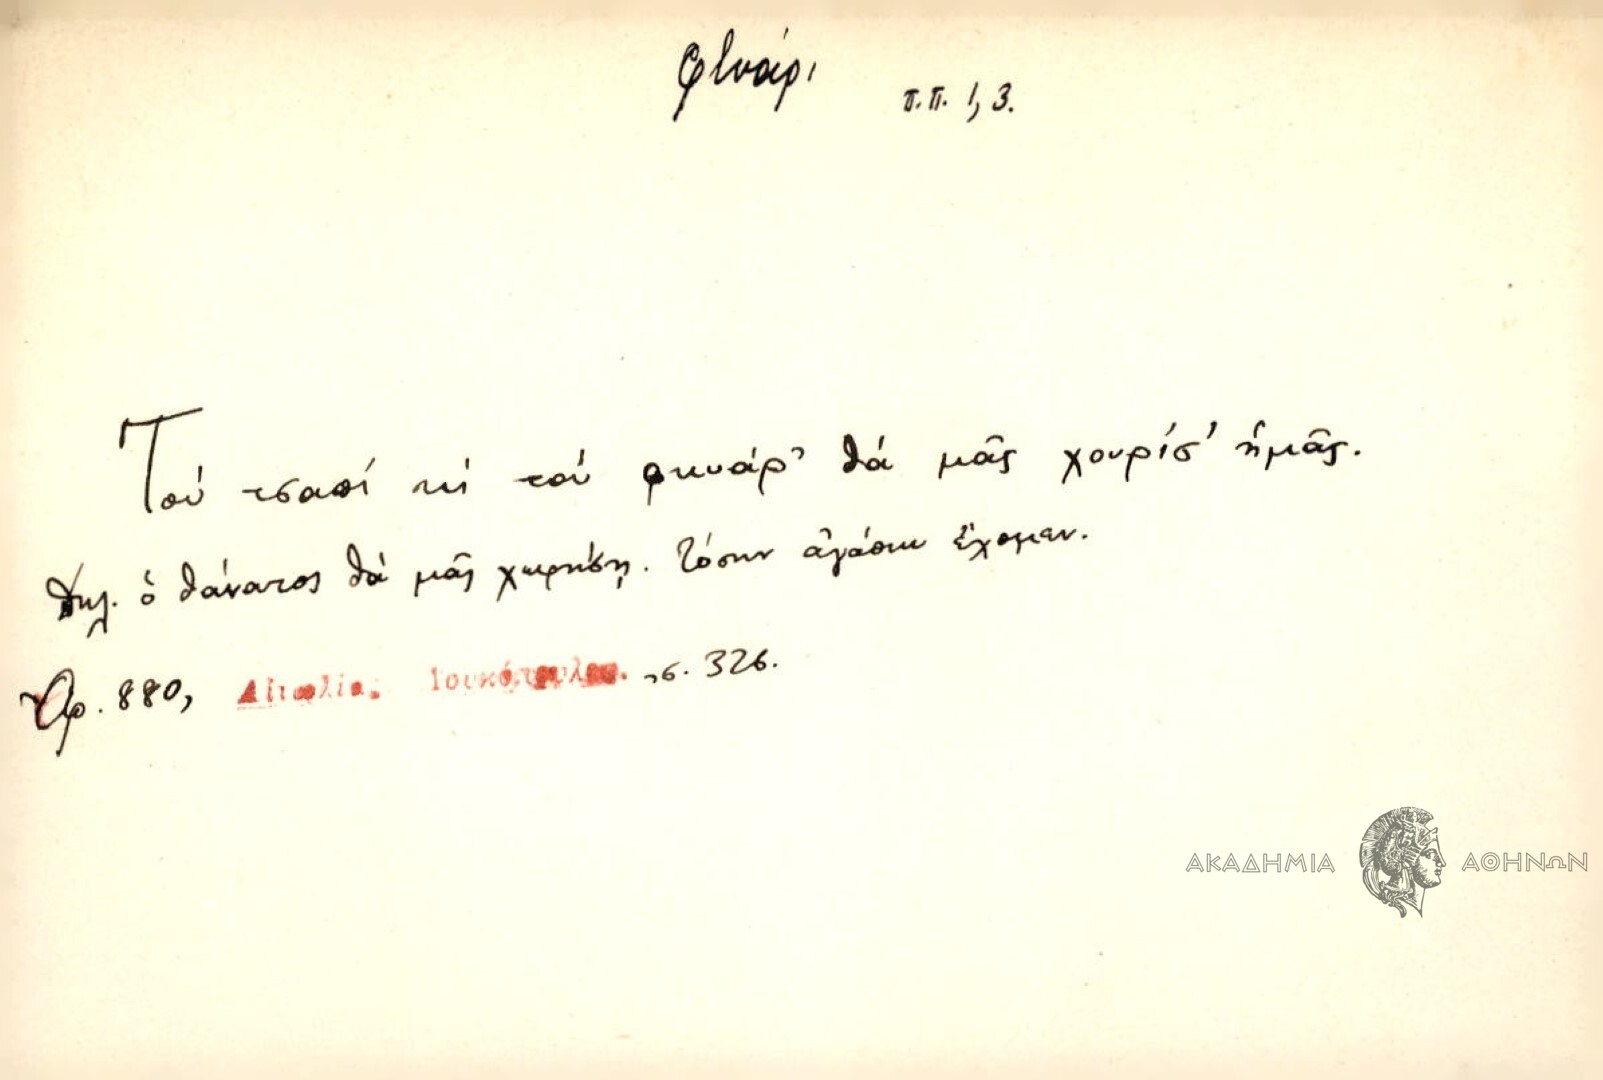 φτυάρι
π.π. 1, 3.
Τοὺ τσαπί κι τοὺ φκυάρ' θὰ μᾶς χουρίσ' ἡμᾶς.
δηλ. ὁ θάνατος θὰ μᾶς χωρήσῃ. Τόσην ἀγάπην ἔχομεν.
Ἀρ. 880, Αἰτωλία, Λουκόπουλος. σ. 326.
ΑΚΑΔΗΜΙΑ ΑΘΗΝΩΝ